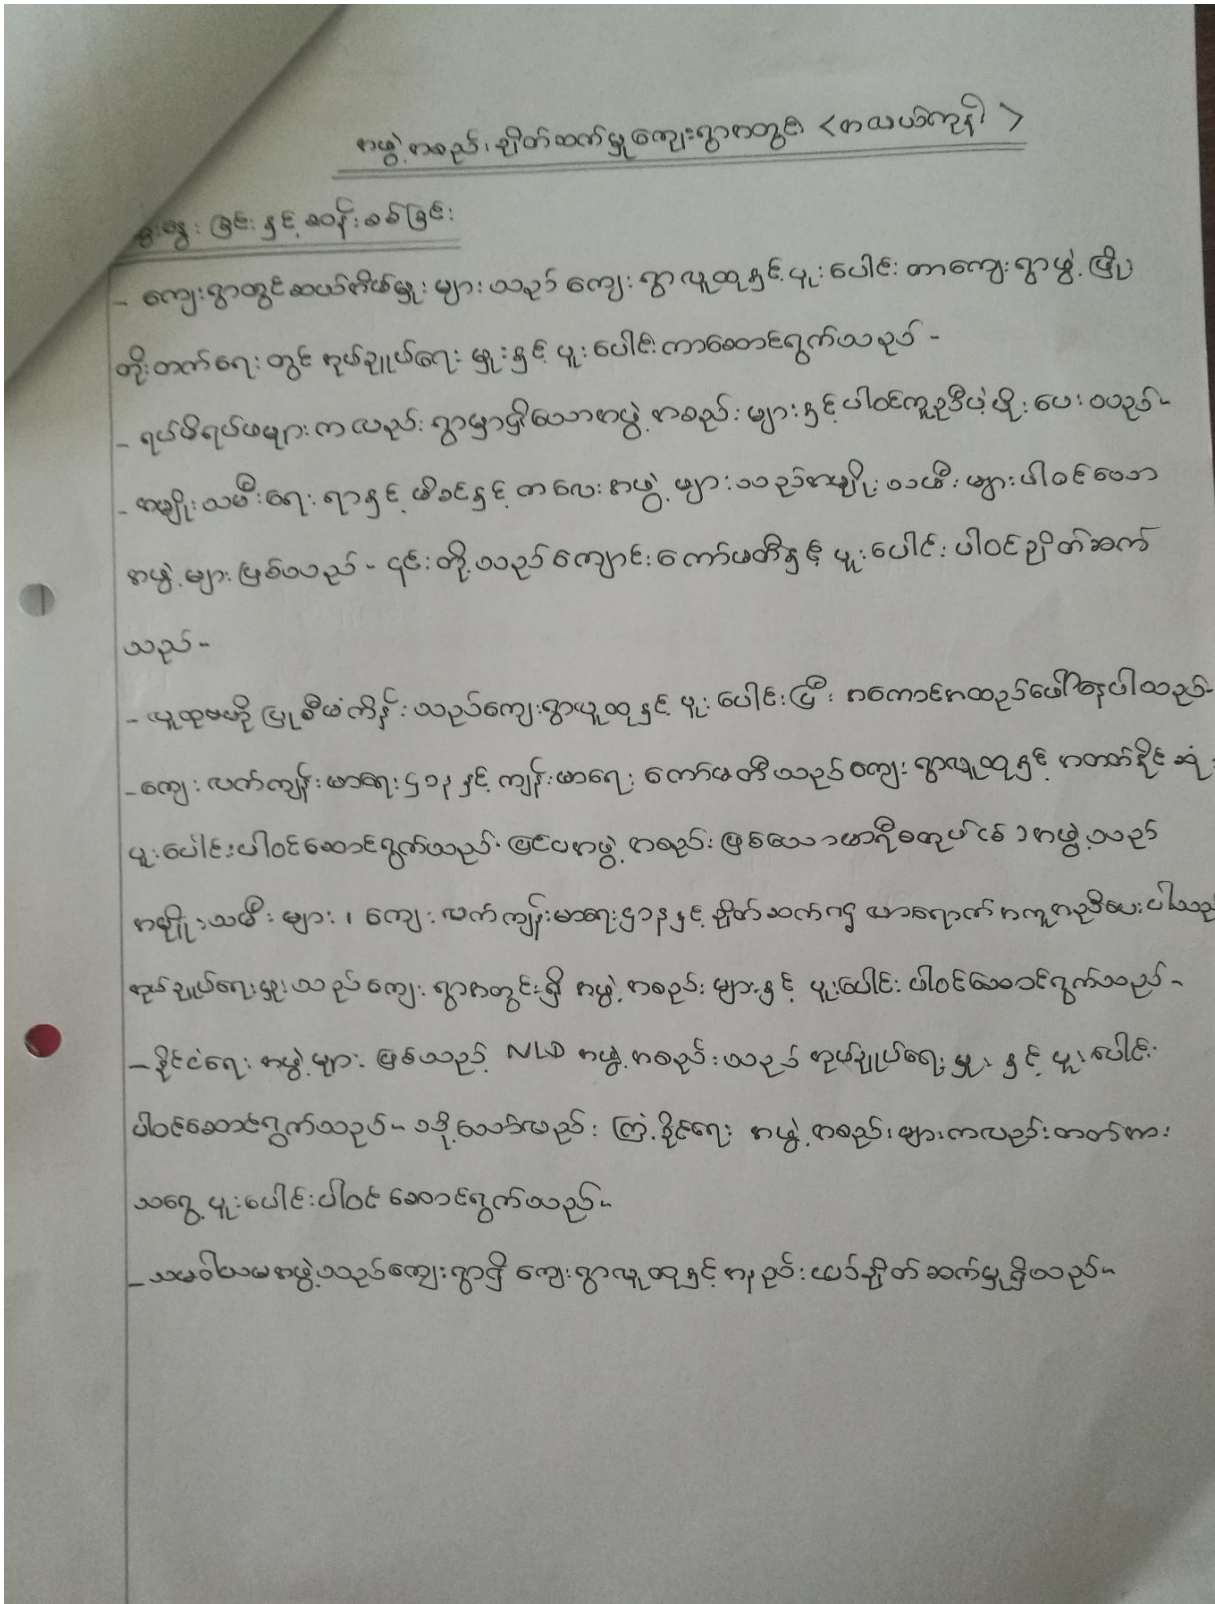 အဖွဲ့အစည်းချိတ်ဆက်မှုကျေးရွာအတွင်း <အလယ်ကုန်း>
ဆွေးနွေးခြင်းနှင့်ဆန်းစစ်ခြင်း
- ကျေးရွာတွင်ဆယ်အိမ်မှူးများသည်ကျေးရွာလူထုနှင့်ပူးပေါင်းကာကျေးရွာဖွံ့ဖြိုး
တိုးတက်ရေးတွင်အုပ်ချုပ်ရေးမှူးနှင့်ပူးပေါင်းကာဆောင်ရွက်သည်-
- ရပ်မိရပ်ဖများကလည်းရွာမှာရှိသောအဖွဲ့အစည်းများနှင့်ပါဝင်ကူညီပံ့ပိုးပေးသည်-
- အမျိုးသမီးရေးရာနှင့်မိခင်နှင့်ကလေးအဖွဲ့များသည်အမျိုးသမီးများပါဝင်သော
အဖွဲ့များဖြစ်သည်- ၎င်းတို့သည်ကျောင်းကော်မတီနှင့်ပူးပေါင်းပါဝင်ချိတ်ဆက်
သည်-
- လူထုဗဟိုပြုစီမံကိန်းသည်ကျေးရွာလူထုနှင့်ပူးပေါင်းပြီးအကောင်အထည်ဖော်နေပါသည်-
- ကျေးလက်ကျန်းမာရေးဌာနနှင့်ကျန်းမာရေးကော်မတီသည်ကျေးရွာလူထုနှင့်အတတ်နိုင်ဆုံး
ပူးပေါင်းပါဝင်ဆောင်ရွက်သည်- ပြင်ပအဖွဲ့အစည်းဖြစ်သောမာရီစတုပ်(စ်)အဖွဲ့သည်
အမျိုးသမီးများ၊ ကျေးလက်ကျန်းမာရေးဌာနနှင့်ချိတ်ဆက်၍လာရောက်အကူအညီပေးပါသည်
အုပ်ချုပ်ရေးမှူးသည်ကျေးရွာအတွင်းရှိအဖွဲ့အစည်းများနှင့်ပူးပေါင်းပါဝင်ဆောင်ရွက်သည်-
- နိုင်ငံရေးအဖွဲ့များဖြစ်သည့် NLD အဖွဲ့အစည်းသည်အုပ်ချုပ်ရေးမှူးနှင့်ပူးပေါင်း
ပါဝင်ဆောင်ရွက်သည်- သို့သော်လည်းကြံ့ခိုင်ရေးအဖွဲ့အစည်းများကလည်းတတ်အား
သရွေ့ပူးပေါင်းပါဝင်ဆောင်ရွက်သည်-
- သမဝါယမအဖွဲ့သည်ကျေးရွာရှိကျေးရွာလူထုနှင့်အနည်းငယ်ချိတ်ဆက်မှုရှိသည်-